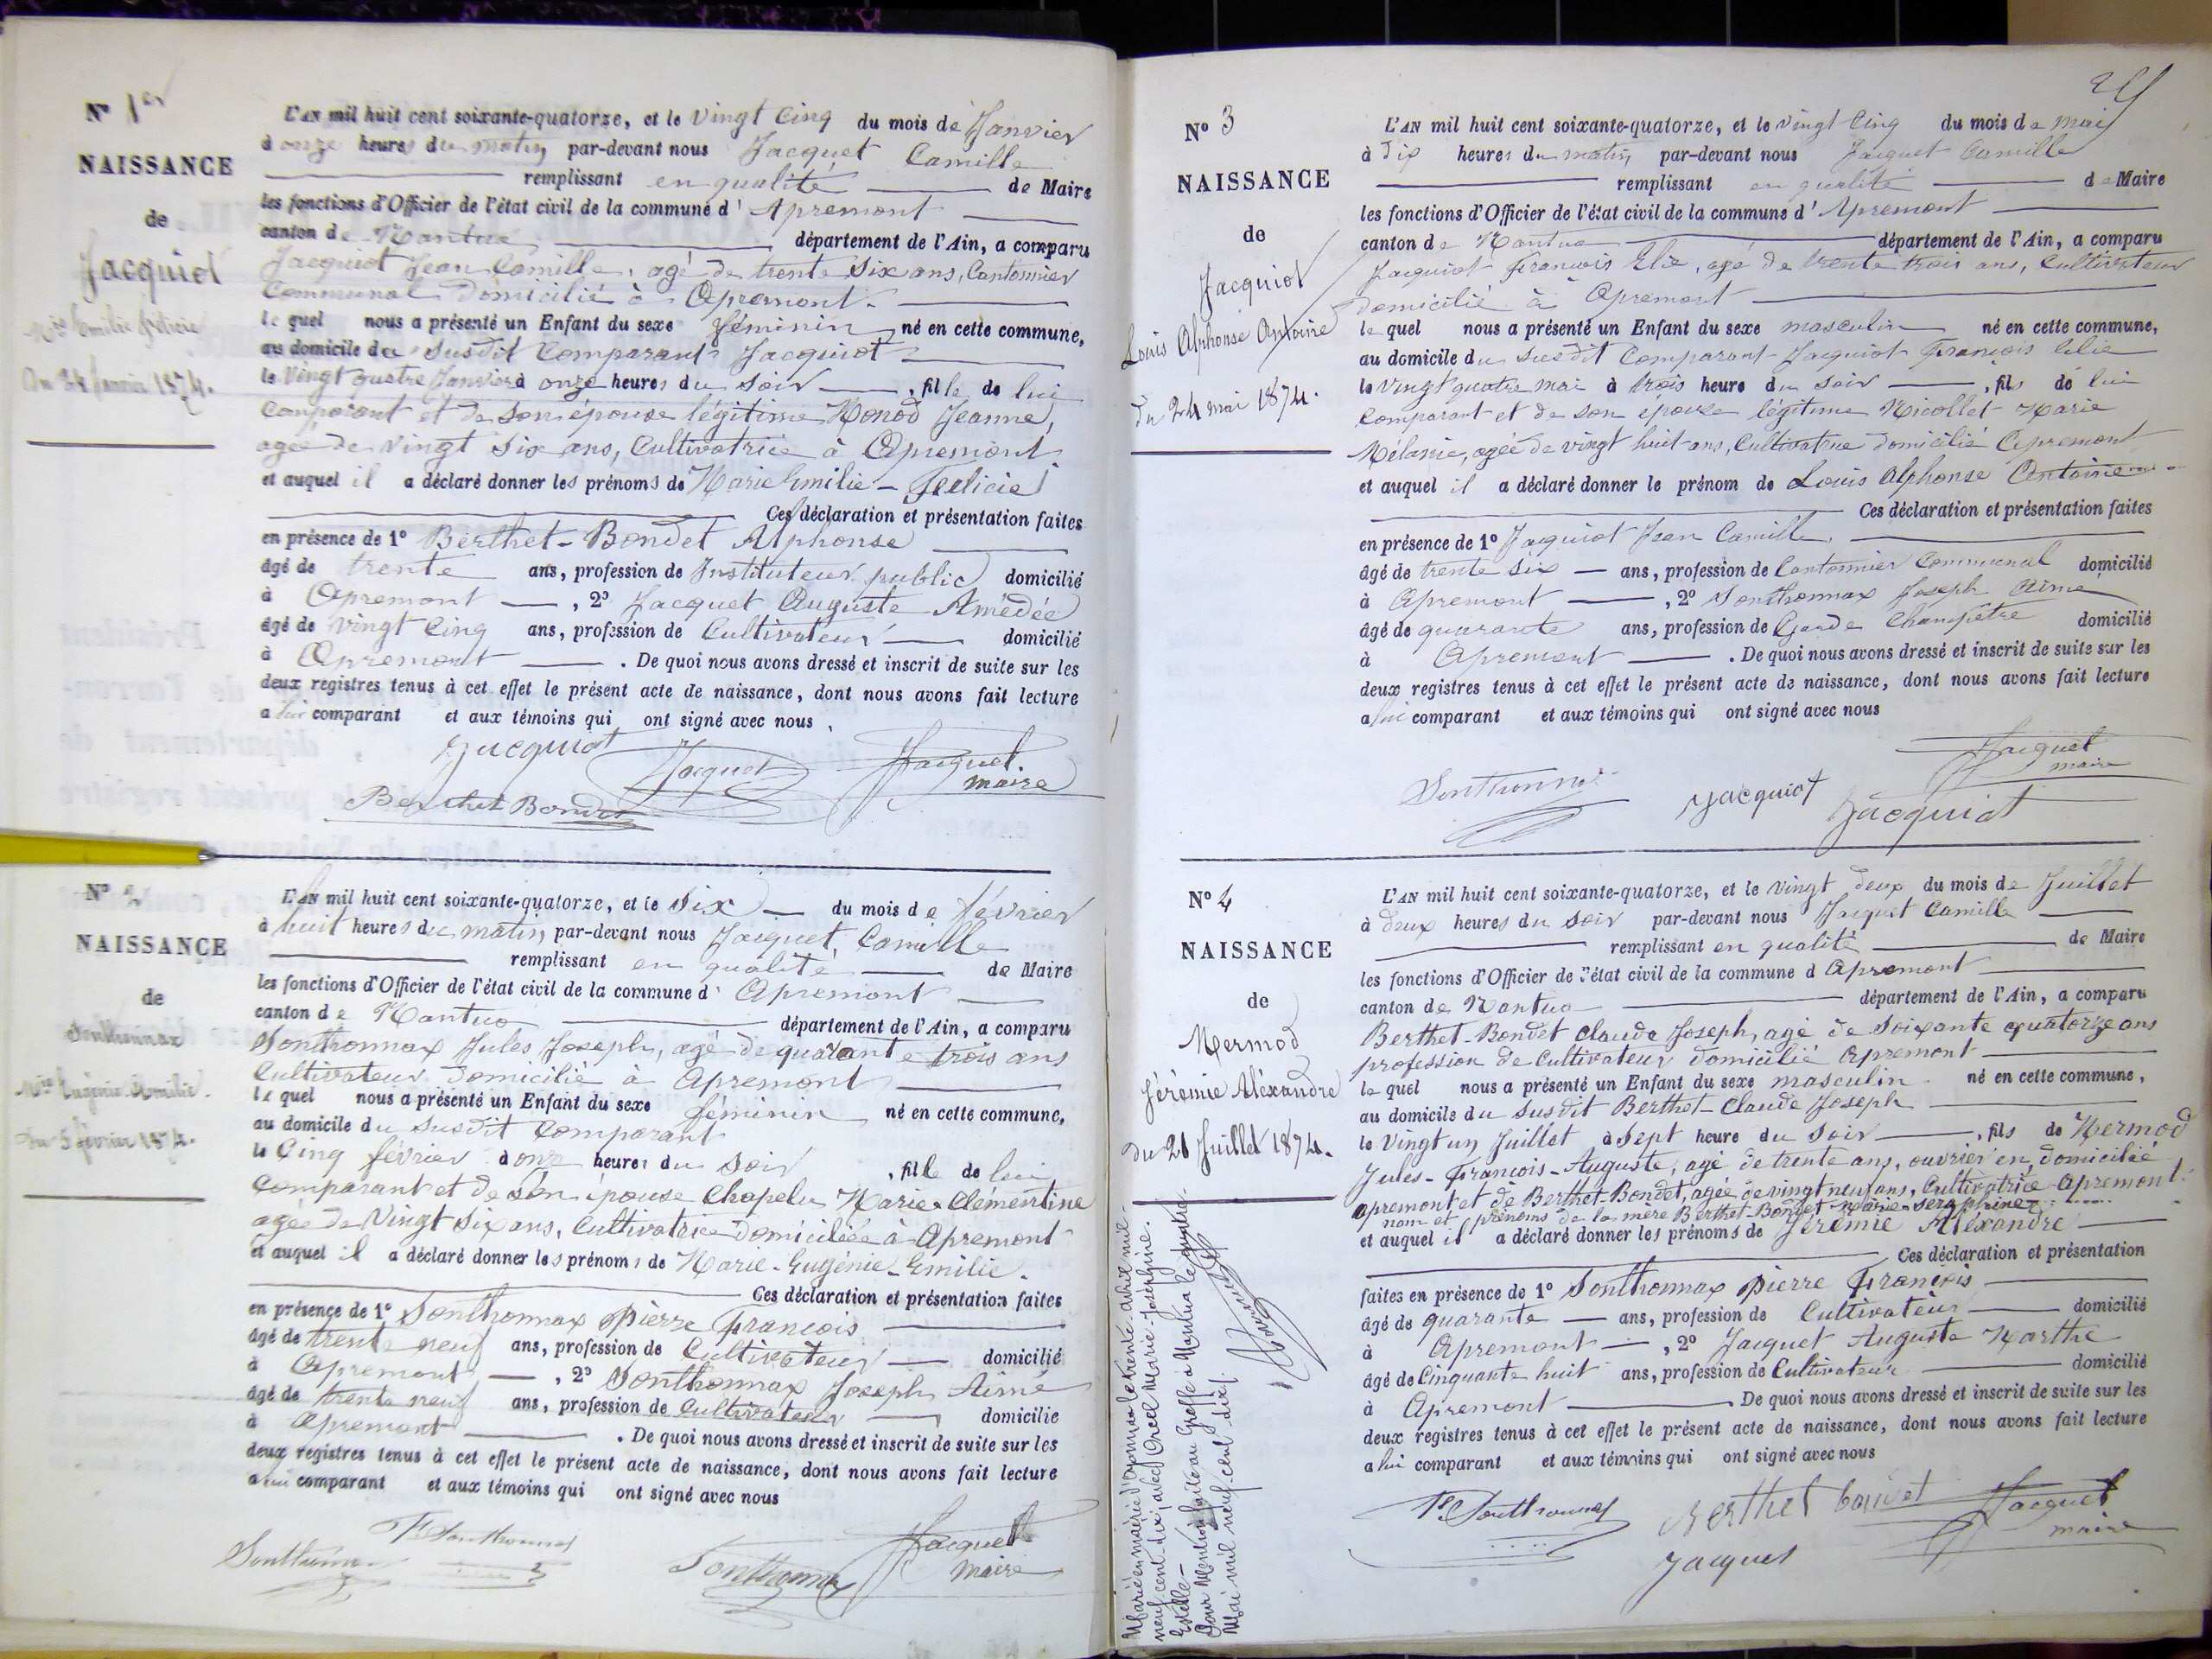 N° 1er
NAISSANCE
de
Jacquiot
Mie Emilie Félicie
du 24 Janvier 1874.
L'AN mil huit cent soixante-quatorze, et le Vingt Cinq du mois de Janvier
à onze heures du matin par-devant nous Jacquet Camille
remplissant en qualité de Maire
les fonctions d'Officier de l'état civil de la commune d' Apremont
canton de Nantua département de l'Ain, a comparu
Jacquiot Jean Camille, agé de trente Six ans, Cantonnier
Communal domicilié à Apremont.
lequel nous a présenté un Enfant du sexe féminin né en cette commune,
au domicile du Susdit Comparant Jacquiot
le Vingt quatre Janvier à onze heures du Soir, fille de lui
Comparant et de Son épouse légitime Monod Jeanne,
agée de Vingt Six ans, Cultivatrice à Apremont
et auquel il a déclaré donner les prénoms de Marie Emilie - Felicie
Ces déclaration et présentation faites
en présence de 1° Berthet-Bondet Alphonse
âgé de trente ans, profession de Instituteur public domicilié
à Apremont, 2° Jacquet Auguste Amédée
âgé de Vingt Cinq ans, profession de Cultivateur domicilié
à Apremont. De quoi nous avons dressé et inscrit de suite sur les
deux registres tenus à cet effet le présent acte de naissance, dont nous avons fait lecture
a lui comparant et aux témoins qui ont signé avec nous,
Jacquiot Jacquet Jacquet
maire
Berthet Bondet
N° 2
NAISSANCE
de
Sonthonnax
Mie Eugénie Emilie.
du 5 février 1874.
L'AN mil huit cent soixante-quatorze, et le Six du mois de février
à huit heures du matin, par-devant nous Jacquet Camille
remplissant en qualité de Maire
les fonctions d'Officier de l'état civil de la commune d' Apremont
canton de Nantua département de l'Ain, a comparu
Sonthonnax Jules Joseph, agé de quarante trois ans
Cultivateur domicilié à Apremont
lequel nous a présenté un Enfant du sexe féminin né en cette commune,
au domicile du Susdit Comparant
le Cinq février à onze heures du Soir, fille de lui
Comparant et de Son épouse Chapelu Marie-Clémentine
agée de Vingt Six ans, Cultivatrice domiciliée à Apremont
et auquel il a déclaré donner les prénoms de Marie-Eugénie-Emilie.
Ces déclaration et présentation faites
en présence de 1° Sonthonnax Pierre François
âgé de trente neuf ans, profession de Cultivateur domicilié
à Apremont, 2° Sonthonnax Joseph Aimé
âgé de trente neuf ans, profession de Cultivateur domicilié
à Apremont. De quoi nous avons dressé et inscrit de suite sur les
deux registres tenus à cet effet le présent acte de naissance, dont nous avons fait lecture
a lui comparant et aux témoins qui ont signé avec nous
Jacquet
maire
N° 3
NAISSANCE
de
Jacquiot
Louis Alphonse Antoine
du 24 mai 1874.
L'AN mil huit cent soixante-quatorze, et le Vingt Cinq du mois de mai
à Dix heures du matin par-devant nous Jacquet Camille
remplissant en qualité de Maire
les fonctions d'Officier de l'état civil de la commune d' Apremont
canton de Nantua département de l'Ain, a comparu
Jacquiot François Elie, agé de trente trois ans, Cultivateur
domicilié à Apremont
lequel nous a présenté un Enfant du sexe masculin né en cette commune,
au domicile du susdit Comparant Jacquiot François Elie
le Vingt quatre mai à trois heure du soir, fils de lui
Comparant et de son épouse légitime Nicollet Marie
Mélanie, agée de vingt huit ans, Cultivatrice domicilié Apremont
et auquel il a déclaré donner le prénom de Louis Alphonse Antoine
Ces déclaration et présentation faites
en présence de 1° Jacquiot Jean Camille,
âgé de trente six ans, profession de Cantonnier Communal domicilié
à Apremont, 2° Sonthonnax Joseph Aimé
âgé de quarante ans, profession de Garde Champêtre domicilié
à Apremont. De quoi nous avons dressé et inscrit de suite sur les
deux registres tenus à cet effet le présent acte de naissance, dont nous avons fait lecture
a lui comparant et aux témoins qui ont signé avec nous
Jacquet
maire
Jacquiot Jacquiot
N° 4
NAISSANCE
de
Mermod
Jérémie Aléxandre
du 21 Juillet 1874.
L'AN mil huit cent soixante-quatorze, et le Vingt deux du mois de Juillet
à deux heures du soir par-devant nous Jacquet Camille
remplissant en qualité de Maire
les fonctions d'Officier de l'état civil de la commune d Apremont
canton de Nantua département de l'Ain, a comparu
Berthet-Bondet Claude Joseph, agé de Soixante quatorze ans
profession de Cultivateur domicilié Apremont
lequel nous a présenté un Enfant du sexe masculin né en cette commune,
au domicile du susdit Berthet-Claude Joseph
le Vingt un Juillet à Sept heure du Soir, fils de Mermod
Jules-François-Auguste, agé de trente ans, ouvrier en, domicilié
apremont et de Berthet-Bondet, agée de vingt neuf ans, Cultivatrice Apremont.
nom et prénoms de la mère Berthet-Bondet Marie-Séraphine
et auquel il a déclaré donner les prénoms de Jérémie Aléxandre
Ces déclaration et présentation
faites en présence de 1° Sonthonnax Pierre François
âgé de quarante ans, profession de Cultivateur domicilié
à Apremont, 2° Jacquet Auguste Marthe
âgé de Cinquante huit ans, profession de Cultivateur domicilié
à Apremont. De quoi nous avons dressé et inscrit de suite sur les
deux registres tenus à cet effet le présent acte de naissance, dont nous avons fait lecture
a lui comparant et aux témoins qui ont signé avec nous
Berthet bondet Jacquet
maire
Jacquet
Marié en mairie d'Apremont le trente avril mil-
neuf cent-dix, avec Marie-Joséphine.
Estelle-
Pour Mention faite au Greffe à Nantua le
Mai mil neuf-cent-dix.